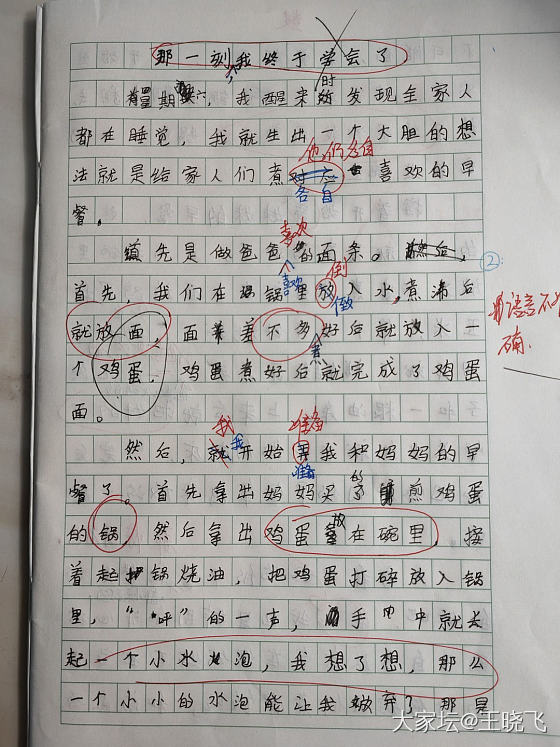 那一刻我终于学会了
星期六，我醒来时发现全家人
都在睡觉，我就生出一个大胆的想
法就是给家人们煮他们各自喜欢的早
各自
餐。
首先是做爸爸喜欢的面条。
首先，我们在锅里倒入水，煮沸后
喜欢 倒
就放一面，面差不多煮好后就放入一
个鸡蛋，鸡蛋煮好后就完成了鸡蛋
面。
然后，我就开始准备我和妈妈的早
我 准备
餐了。首先拿出妈妈买的煎鸡蛋
的锅，然后拿出鸡蛋放在碗里，接
着起锅烧油，把鸡蛋打碎放入锅
里，“呯”的一声，手中就长
起一个小水泡，我想了想，那么
一个小小的水泡能让我放弃了那是
②：
语言不
确.
大家坛@王晓飞